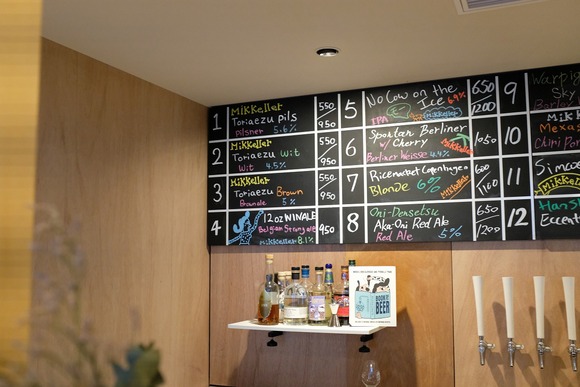 1
Mikkeller
Toriaezu Pils
Pilsner 5.6%
550
950
2
Mikkeller
Toriaezu Wit
Wit 4.5%
550
950
3
Mikkeller
Toriaezu Brown
Brown ale 5%
550
950
4
12oz WINALE
Belgian Strong ale
Mikkeller 8.1%
950
5
No Cow on the
Ice 6.9%
IPA
Mikkeller
650
1200
6
Spontan Berliner
w/ Cherry
Berliner Weisse 4.4%
1050
7
Ricemarket Copenhagen
Blonde 6%
Mikkeller
600
1160
8
Oni-Densetsu
Aka-Oni Red Ale
Red Ale 5%
600
1200
9
Warpig
Sky
Barley
10
Mikk
Mexa
Chili Por
11
Simco
Mikkeller
12
Hansh
Eccent
BOOK OF
BEER